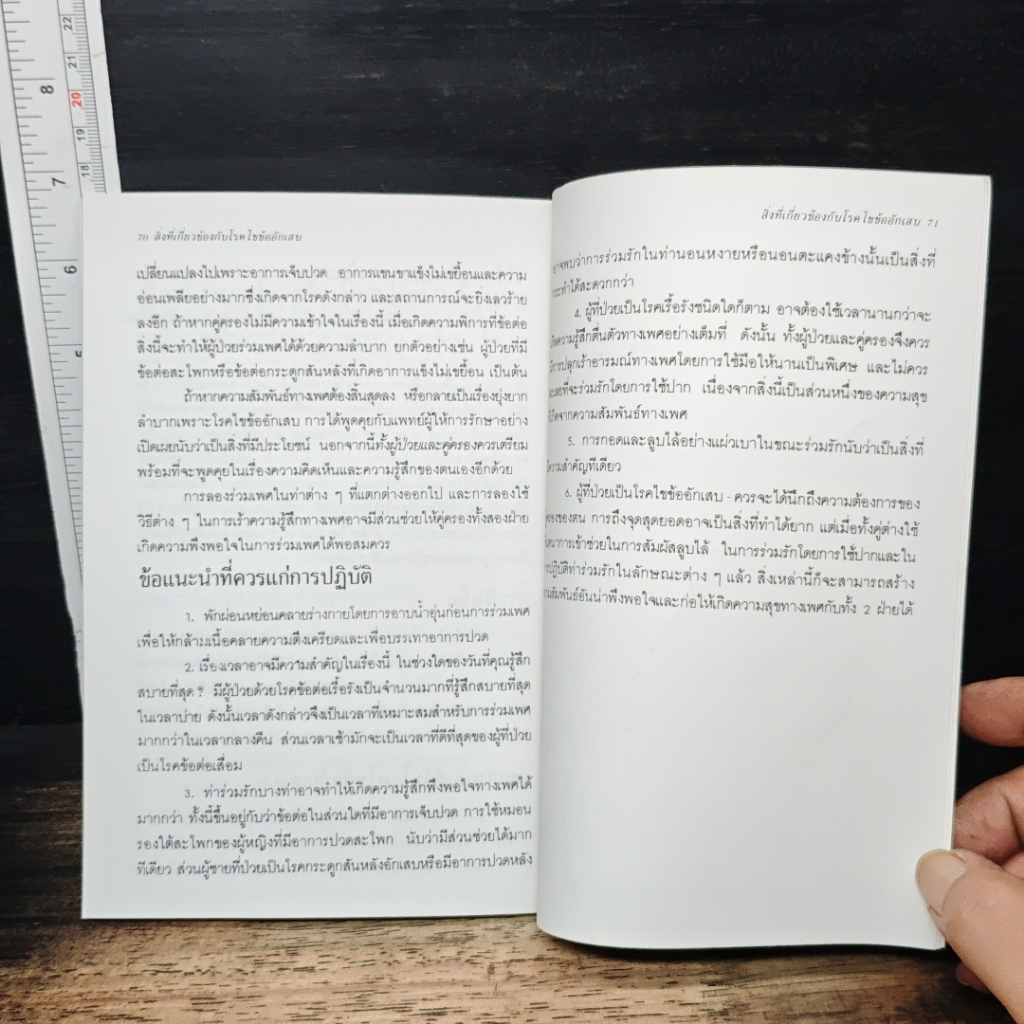 70 สิ่งที่เกี่ยวข้องกับโรคไขข้ออักเสบ
เปลี่ยนแปลงไปเพราะอาการเจ็บปวด อาการแขนขาแข็งไม่เขยื้อนและความ
อ่อนเพลียอย่างมากซึ่งเกิดจากโรคดังกล่าว และสถานการณ์จะยิ่งเลวร้าย
ลงอีก ถ้าหากคู่ครองไม่มีความเข้าใจในเรื่องนี้ เมื่อเกิดความพิการที่ข้อต่อ
สิ่งนี้จะทำให้ผู้ป่วยร่วมเพศได้ด้วยความลำบาก ยกตัวอย่างเช่น ผู้ป่วยที่มี
ข้อต่อสะโพกหรือข้อต่อกระดูกสันหลังที่เกิดอาการแข็งไม่เขยื้อน เป็นต้น
ถ้าหากความสัมพันธ์ทางเพศต้องสิ้นสุดลง หรือกลายเป็นเรื่องยุ่งยาก
ลำบากเพราะโรคไขข้ออักเสบ การได้พูดคุยกับแพทย์ผู้ให้การรักษาอย่าง
เปิดเผยนับว่าเป็นสิ่งที่มีประโยชน์ นอกจากนี้ทั้งผู้ป่วยและคู่ครองควรเตรียม
พร้อมที่จะพูดคุยในเรื่องความคิดเห็นและความรู้สึกของตนเองอีกด้วย
การลองร่วมเพศในท่าต่าง ๆ ที่แตกต่างออกไป และการลองใช้
วิธีต่าง ๆ ในการเร้าความรู้สึกทางเพศอาจมีส่วนช่วยให้คู่ครองทั้งสองฝ่าย
เกิดความพึงพอใจในการร่วมเพศได้พอสมควร
ข้อแนะนำที่ควรแก่การปฏิบัติ
1. พักผ่อนหย่อนคลายร่างกายโดยการอาบน้ำอุ่นก่อนการร่วมเพศ
เพื่อให้กล้ามเนื้อคลายความตึงเครียดและเพื่อบรรเทาอาการปวด
2. เรื่องเวลาอาจมีความสำคัญในเรื่องนี้ ในช่วงใดของวันที่คุณรู้สึก
สบายที่สุด ? มีผู้ป่วยด้วยโรคข้อต่อเรื้อรังเป็นจำนวนมากที่รู้สึกสบายที่สุด
ในเวลาบ่าย ดังนั้นเวลาดังกล่าวจึงเป็นเวลาที่เหมาะสมสำหรับการร่วมเพศ
มากกว่าในเวลากลางคืน ส่วนเวลาเช้ามักจะเป็นเวลาที่ดีที่สุดของผู้ที่ป่วย
เป็นโรคข้อต่อเสื่อม
3. ท่าร่วมรักบางท่าอาจทำให้เกิดความรู้สึกพึงพอใจทางเพศได้
มากกว่า ทั้งนี้ขึ้นอยู่กับว่าข้อต่อในส่วนใดที่มีอาการเจ็บปวด การใช้หมอน
รองใต้สะโพกของผู้หญิงที่มีอาการปวดสะโพก นับว่ามีส่วนช่วยได้มาก
ทีเดียว ส่วนผู้ชายที่ป่วยเป็นโรคกระดูกสันหลังอักเสบหรือมีอาการปวดหลัง
สิ่งที่เกี่ยวข้องกับโรคไขข้ออักเสบ 71
อาจพบว่าการร่วมรักในท่านอนหงายหรือนอนตะแคงข้างนั้นเป็นสิ่งที่
กระทำได้สะดวกกว่า
4. ผู้ที่ป่วยเป็นโรคเรื้อรังชนิดใดก็ตาม อาจต้องใช้เวลานานกว่าจะ
เกิดความรู้สึกตื่นตัวทางเพศอย่างเต็มที่ ดังนั้น ทั้งผู้ป่วยและคู่ครองจึงควร
มีการปลุกเร้าอารมณ์ทางเพศโดยการใช้มือให้นานเป็นพิเศษ และไม่ควร
ละเลยที่จะร่วมรักโดยการใช้ปาก เนื่องจากสิ่งนี้เป็นส่วนหนึ่งของความสุข
ที่เกิดจากความสัมพันธ์ทางเพศ
5. การกอดและลูบไล้อย่างแผ่วเบาในขณะร่วมรักนับว่าเป็นสิ่งที่
มีความสำคัญทีเดียว
6. ผู้ที่ป่วยเป็นโรคไขข้ออักเสบ - ควรจะได้นึกถึงความต้องการของ
คู่ครองของตน การถึงจุดสุดยอดอาจเป็นสิ่งที่ทำได้ยาก แต่เมื่อทั้งคู่ต่างใช้
การเข้าช่วยในการสัมผัสลูบไล้ ในการร่วมรักโดยการใช้ปากและใน
การปฏิบัติท่าร่วมรักในลักษณะต่าง ๆ แล้ว สิ่งเหล่านี้ก็จะสามารถสร้าง
ความสัมพันธ์อันน่าพึงพอใจและก่อให้เกิดความสุขทางเพศกับทั้ง 2 ฝ่ายได้
22
8
20
19
18
7
6
5